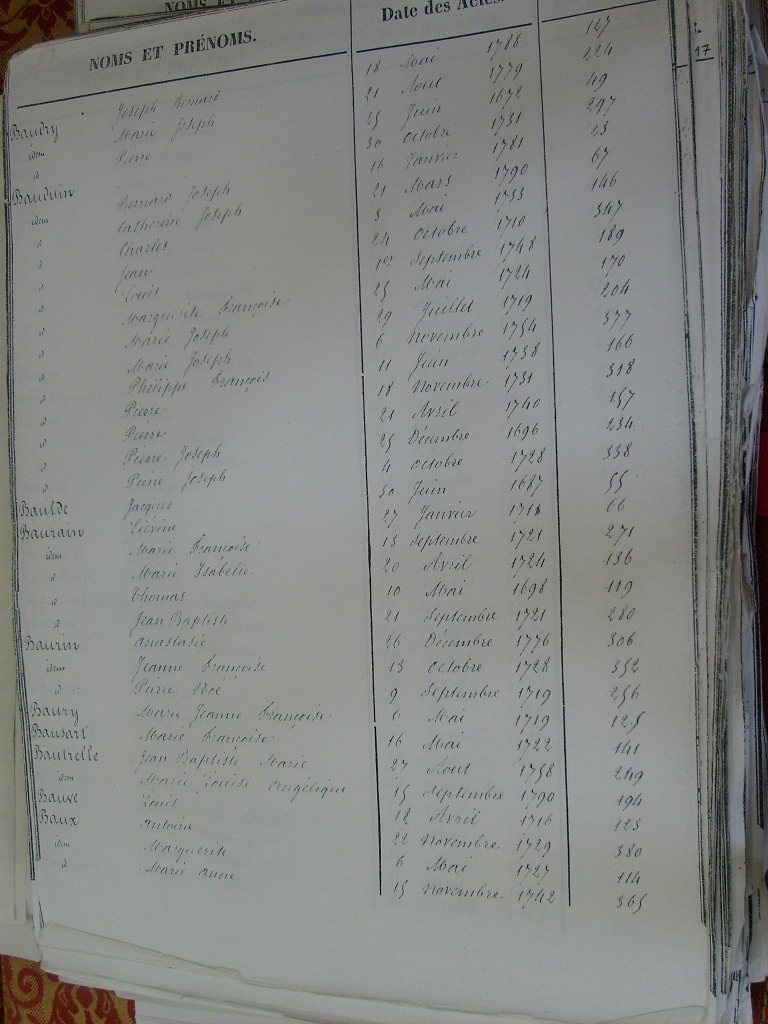 NOMS ET PRÉNOMS. Date des Actes.
Baudry Joseph Bernard 18 Mai 1788 147
idem Marie Joseph 21 Aout 1779 224
d Pierre 25 Juin 1672 49
30 Octobre 1731 297
Bauduin Bernard Joseph 16 Janvier 1781 23
idem Catherine Joseph 21 Mars 1790 67
d Charles 3 Mai 1733 146
d Jean 24 Octobre 1710 347
d Louis 1er Septembre 1748 189
d Marguerite Françoise 25 Mai 1724 170
d Marie Joseph 29 Juillet 1719 204
d Marie Joseph 6 Novembre 1754 377
d Philippe François 11 Juin 1738 166
d Pierre 18 Novembre 1731 318
d Pierre 21 Avril 1740 157
d Pierre Joseph 25 Décembre 1696 234
d Pierre Joseph 4 Octobre 1728 338
Baulde Jacques 30 Juin 1687 55
Baurain Liévine 27 Janvier 1713 66
idem Marie Françoise 13 Septembre 1721 271
d Marie Isabelle 20 Avril 1724 136
d Thomas 10 Mai 1698 119
d Jean Baptiste 21 Septembre 1721 280
Baurin anastasie 26 Décembre 1776 306
idem Jeanne Françoise 13 Octobre 1728 352
d Pierre Noé 9 Septembre 1719 256
Baury Marie Jeanne Françoise 6 Mai 1719 125
Bausart Marie Françoise 16 Mai 1722 141
Bautrelle Jean Baptiste Marie 27 Aout 1758 249
idem Marie Louise angélique 15 Septembre 1790 194
Bauve Louis 12 Avril 1716 123
Baux antoine 22 Novembre 1729 380
idem Marguerite 6 Mai 1727 114
d Marie anne 15 Novembre 1742 365
17